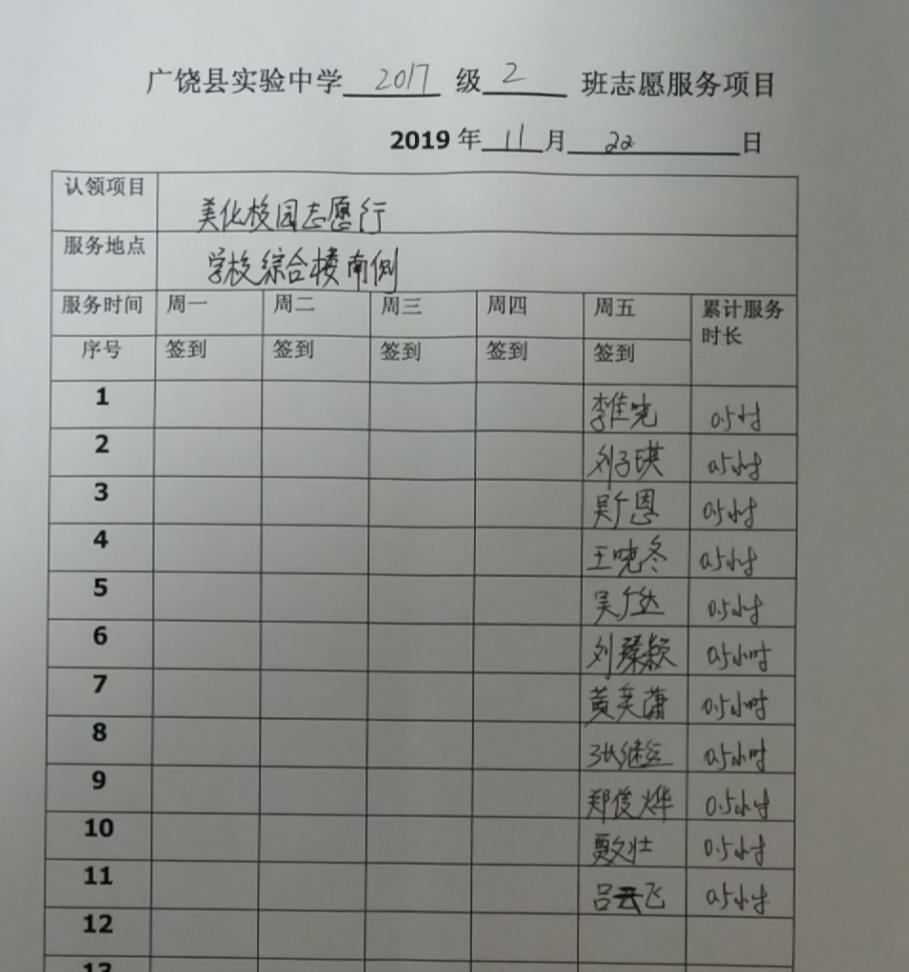 广饶县实验中学 2017 级 2 班志愿服务项目
2019 年 11 月 22 日
认领项目 美化校园志愿行
服务地点 学校综合楼南侧
服务时间 周一 周二 周三 周四 周五 累计服务时长
序号 签到 签到 签到 签到 签到
1 李佳尧 0.5时
2 刘子琪 0.5小时
3 吴广恩 0.5小时
4 王晓冬 0.5小时
5 吴广达 0.5小时
6 刘臻颖 0.5小时
7 黄奕潇 0.5小时
8 张继 0.5小时
9 郑俊烨 0.5小时
10 贾文壮 0.5小时
11 吕云飞 0.5小时
12
13